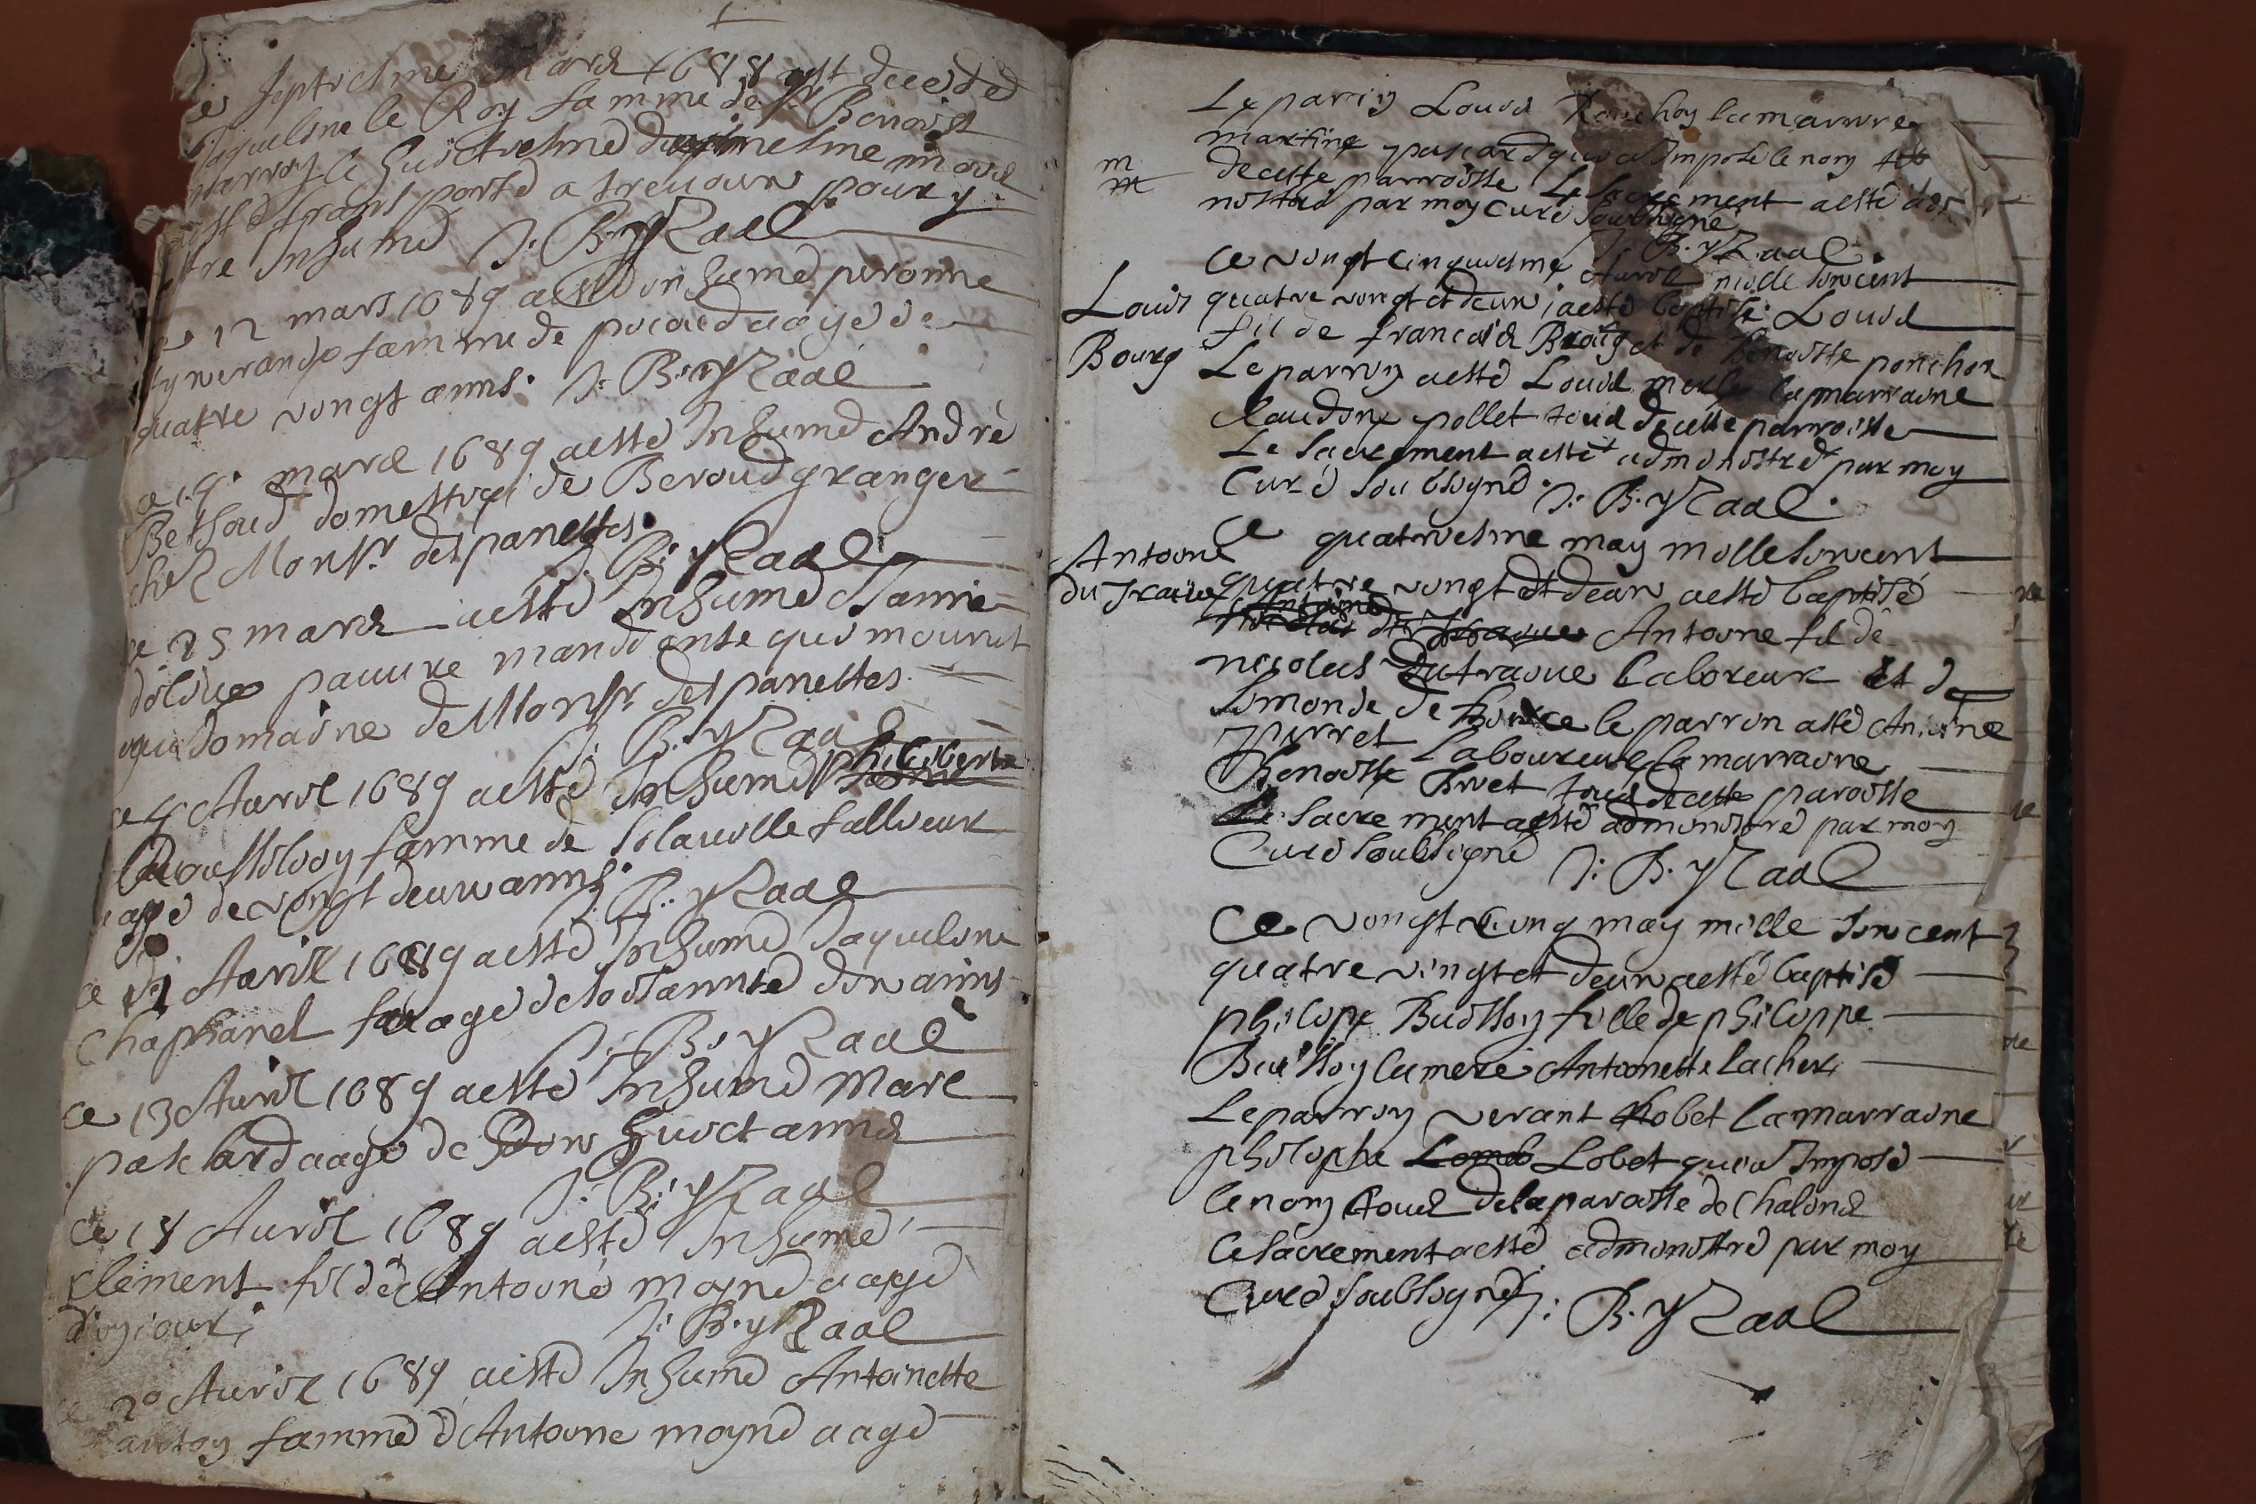 septiesme mars 1688 est decedé
Jaqueline le Roy famme de sr Benoist
le huictiesme du mesme mois
esté transporté a trevoux pour y
estre Inhumé J: B: yRaal
ce 12 mars 1689 a esté Inhumé peronne
famme de picard aagé de
quatre vingt anns. J: B: yRaal
ce 19 mars 1689 a esté Inhumé André
Berhoud domestique de Beroud granger
chez Monsr. des panettes.
J: B: yRaal
ce 25 mars a esté Inhumé
pauure mandiante qui mourut
au domaine de Monsr. des panettes.
J: B. yRaal
ce 4 Auril 1689 a esté Inhumé philiberte
famme de tallieur
aagé de vingt deux anns.
J: B: yRaal
ce 11 Auril 1689 a esté Inhumé Jaqueline
Chaphanel aagé de soisannte dix anns
J: B: yRaal
ce 13 Auril 1689 a esté Inhumé Marc
paschard aagé de dix huict anns
J: B: yRaal
ce 18 Auril 1689 a esté Inhumé
Clement fil dé Antoine moyne aagé
d'un iour;
J: B. yRaal
ce 20 Auril 1689 a esté Inhumé Antoinette
famme d'Antoine moyne aagé
Le parrin Louis la marrine
martine pascard qui a Imposé le nom
m
de cette parroisse Le Sacrement a esté admi
nistré par moy Curé soubsigné
J: B. yRaal
Ce vingt cinquiesme Auril mille sixcent
Louis
quatre vingt et deux a esté baptisé Louis
fil de francois Bourg et de Benoiste ponchon
Bourg
Le parrin a esté Louis la marraine
Claudine pollet tous de cette parroisse
Le sacrement a esté administré par moy
Curé soubsigné. J: B. yRaal.
Ce quatriesme may mille sixcent
Antoine
du Traiue
quatre vingt et deux a esté baptisé
Antoine fil de
nicolas Dutraiue laboreur et de
simonde de le parrin a esté Antoine
pirret laboureur la marraine
Benoiste tous de cette paroisse
Le Sacrement a esté administré par moy
Curé soubsigné J: B. yRaal
Ce vingt cinq may mille sixcent
quatre vingt et deux a esté baptisé
philipe Buisson fille de philippe
Buisson la mere Antoinette lacher
Le parrin verant Lobet la marraine
philiphe Lobet qui a Imposé
le nom tous de la paroisse de Chalins
le sacrement a esté administré par moy
Curé soubsigné J: B. yRaal